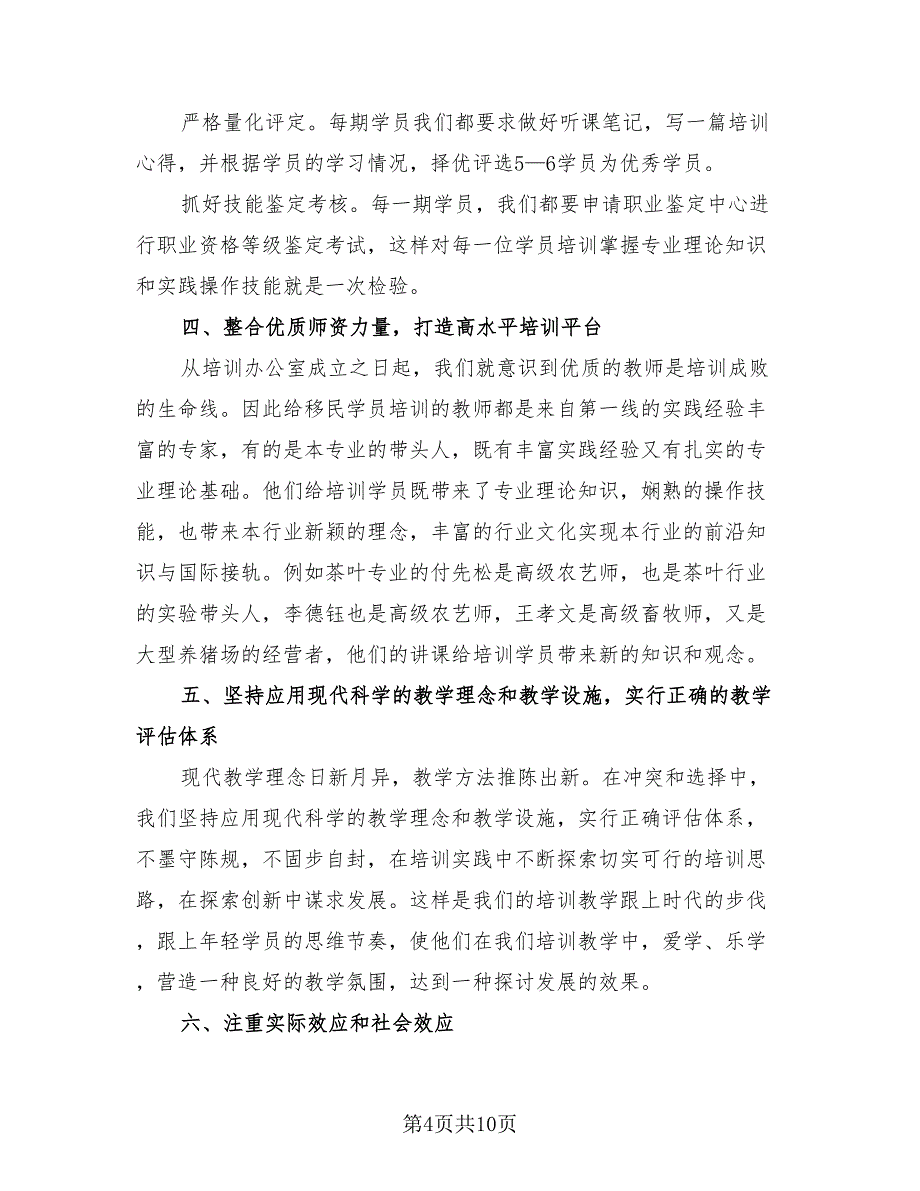 严格量化评定。每期学员我们都要求做好听课笔记，写一篇培训
心得，并根据学员的学习情况，择优评选5—6学员为优秀学员。
抓好技能鉴定考核。每一期学员，我们都要申请职业鉴定中心进
行职业资格等级鉴定考试，这样对每一位学员培训掌握专业理论知识
和实践操作技能就是一次检验。
四、整合优质师资力量，打造高水平培训平台
从培训办公室成立之日起，我们就意识到优质的教师是培训成败
的生命线。因此给移民学员培训的教师都是来自第一线的实践经验丰
富的专家，有的是本专业的带头人，既有丰富实践经验又有扎实的专
业理论基础。他们给培训学员既带来了专业理论知识，娴熟的操作技
能，也带来本行业新颖的理念，丰富的行业文化实现本行业的前沿知
识与国际接轨。例如茶叶专业的付先松是高级农艺师，也是茶叶行业
的实验带头人，李德钰也是高级农艺师，王孝文是高级畜牧师，又是
大型养猪场的经营者，他们的讲课给培训学员带来新的知识和观念。
五、坚持应用现代科学的教学理念和教学设施，实行正确的教学
评估体系
现代教学理念日新月异，教学方法推陈出新。在冲突和选择中，
我们坚持应用现代科学的教学理念和教学设施，实行正确评估体系，
不墨守陈规，不固步自封，在培训实践中不断探索切实可行的培训思
路，在探索创新中谋求发展。这样是我们的培训教学跟上时代的步伐
，跟上年轻学员的思维节奏，使他们在我们培训教学中，爱学、乐学
，营造一种良好的教学氛围，达到一种探讨发展的效果。
六、注重实际效应和社会效应
第4页共10页